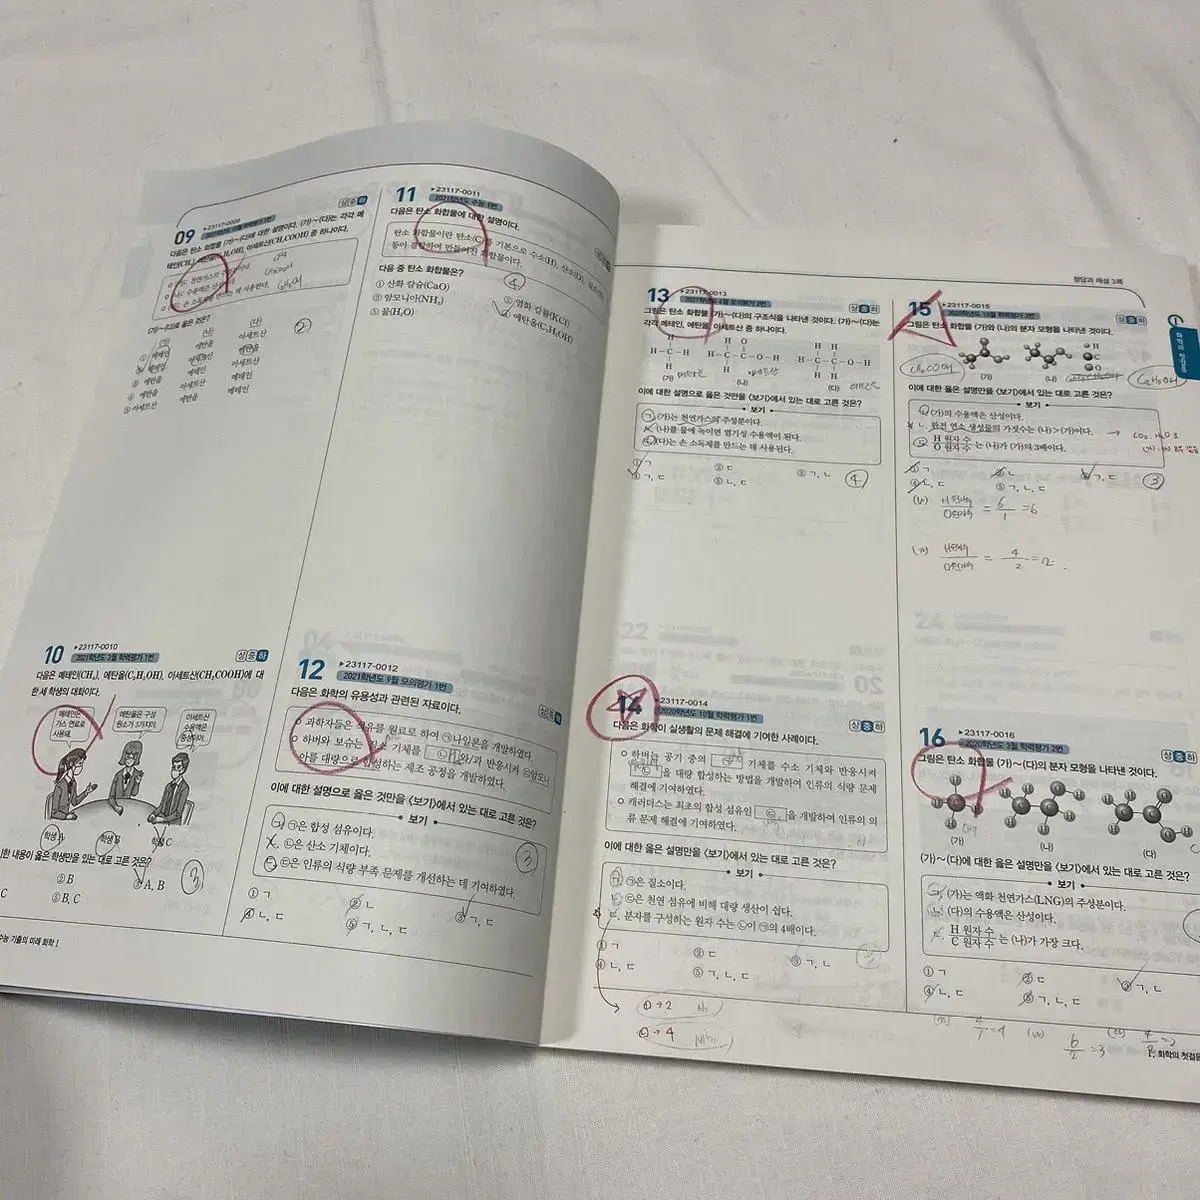 09
▶23117-0009
다음은 탄소 화합물 (가)~(다)에 대한 설명이다. (가)~(다)는 각각 메
아세트산(CH₃COOH) 중 하나이다.
(가)~(다)로 옳은 것은?
(가) (나) (다)
① 메테인 에탄올 아세트산
② 메테인 아세트산 에탄올
③ 에탄올 메테인 아세트산
④ 에탄올 아세트산 메테인
⑤ 아세트산 에탄올 메테인
②
10
▶23117-0010
2021학년도 3월 학력평가 1번
상 중 하
다음은 메테인(CH₄), 에탄올(C₂H₅OH), 아세트산(CH₃COOH)에 대
한 세 학생의 대화이다.
메테인은
가스 연료로
사용돼.
에탄올은 구성
원소가 3가지야.
아세트산
수용액은
중성이야.
학생 A
학생 B
학생 C
한 내용이 옳은 학생만을 있는 대로 고른 것은?
② B
③ A, B
⑤ B, C
수능 기출의 미래 화학 Ⅰ
11
▶23117-0011
2021학년도 수능 1번
다음은 탄소 화합물에 대한 설명이다.
탄소 화합물이란 탄소(C)를 기본으로 수소(H), 산소(O),
등이 결합하여 만들어진 화합물이다.
다음 중 탄소 화합물은?
④
① 산화 칼슘(CaO)
② 염화 칼륨(KCl)
③ 암모니아(NH₃)
④ 에탄올(C₂H₅OH)
⑤ 물(H₂O)
12
▶23117-0012
2021학년도 9월 모의평가 1번
상 중 하
다음은 화학의 유용성과 관련된 자료이다.
○ 과학자들은 석유를 원료로 하여 ㉠나일론을 개발하였다.
○ 하버와 보슈는 질소 기체를 ㉡ 와/과 반응시켜 ㉢암모니
아를 대량으로 합성하는 제조 공정을 개발하였다.
이에 대한 설명으로 옳은 것만을 <보기>에서 있는 대로 고른 것은?
보기
ㄱ. ㉠은 합성 섬유이다.
ㄴ. ㉡은 산소 기체이다.
ㄷ. ㉢은 인류의 식량 부족 문제를 개선하는 데 기여하였다.
③
① ㄱ ② ㄴ ③ ㄱ, ㄷ
④ ㄴ, ㄷ ⑤ ㄱ, ㄴ, ㄷ
정답과 해설 3쪽
13
▶23117-0013
2021학년도 6월 모의평가 2번
상 중 하
그림은 탄소 화합물 (가)~(다)의 구조식을 나타낸 것이다. (가)~(다)는
각각 메테인, 에탄올, 아세트산 중 하나이다.
(가) 메테인
(나) 아세트산
(다) 에탄올
이에 대한 설명으로 옳은 것만을 <보기>에서 있는 대로 고른 것은?
보기
ㄱ. (가)는 천연가스의 주성분이다.
ㄴ. (나)를 물에 녹이면 염기성 수용액이 된다.
ㄷ. (다)는 손 소독제를 만드는 데 사용된다.
① ㄱ ② ㄷ ③ ㄱ, ㄴ
④ ㄱ, ㄷ ⑤ ㄴ, ㄷ
④
14
▶23117-0014
2020학년도 10월 학력평가 1번
상 중 하
다음은 화학이 실생활의 문제 해결에 기여한 사례이다.
○ 하버는 공기 중의 ㉠ 기체를 수소 기체와 반응시켜
㉡ 을 대량 합성하는 방법을 개발하여 인류의 식량 문제
해결에 기여하였다.
○ 캐러더스는 최초의 합성 섬유인 ㉢ 을 개발하여 인류의 의
류 문제 해결에 기여하였다.
이에 대한 옳은 설명만을 <보기>에서 있는 대로 고른 것은?
보기
ㄱ. ㉠은 질소이다.
ㄴ. ㉢은 천연 섬유에 비해 대량 생산이 쉽다.
ㄷ. 분자를 구성하는 원자 수는 ㉡이 ㉠의 4배이다.
① ㄱ ② ㄷ ③ ㄱ, ㄴ
④ ㄴ, ㄷ ⑤ ㄱ, ㄴ, ㄷ
③
㉠→2 N₂
㉡→4 NH₃
15
▶23117-0015
2020학년도 10월 학력평가 3번
상 중 하
그림은 탄소 화합물 (가)와 (나)의 분자 모형을 나타낸 것이다.
CH₃COOH
(가)
(나)
H
C
O
C₂H₅OH
이에 대한 옳은 설명만을 <보기>에서 있는 대로 고른 것은?
보기
ㄱ. (가)의 수용액은 산성이다.
ㄴ. 완전 연소 생성물의 가짓수는 (나)>(가)이다.
→ CO₂, H₂O
ㄷ. H 원자 수/O 원자 수 는 (나)가 (가)의 3배이다.
① ㄱ ② ㄴ ③ ㄱ, ㄷ
④ ㄴ, ㄷ ⑤ ㄱ, ㄴ, ㄷ
③
(나) H원자수/O원자수 = 6/1 = 6
(가) H원자수/O원자수 = 4/2 = 2
16
▶23117-0016
2020학년도 3월 학력평가 2번
상 중 하
그림은 탄소 화합물 (가)~(다)의 분자 모형을 나타낸 것이다.
(가)
(나)
(다)
(가)~(다)에 대한 옳은 설명만을 <보기>에서 있는 대로 고른 것은?
보기
ㄱ. (가)는 액화 천연가스(LNG)의 주성분이다.
ㄴ. (다)의 수용액은 산성이다.
ㄷ. H 원자 수/C 원자 수 는 (나)가 가장 크다.
① ㄱ ② ㄷ ③ ㄱ, ㄴ
④ ㄴ, ㄷ ⑤ ㄱ, ㄴ, ㄷ
(가) 4/1=4 (나) 6/2=3 (다) 4/2=2